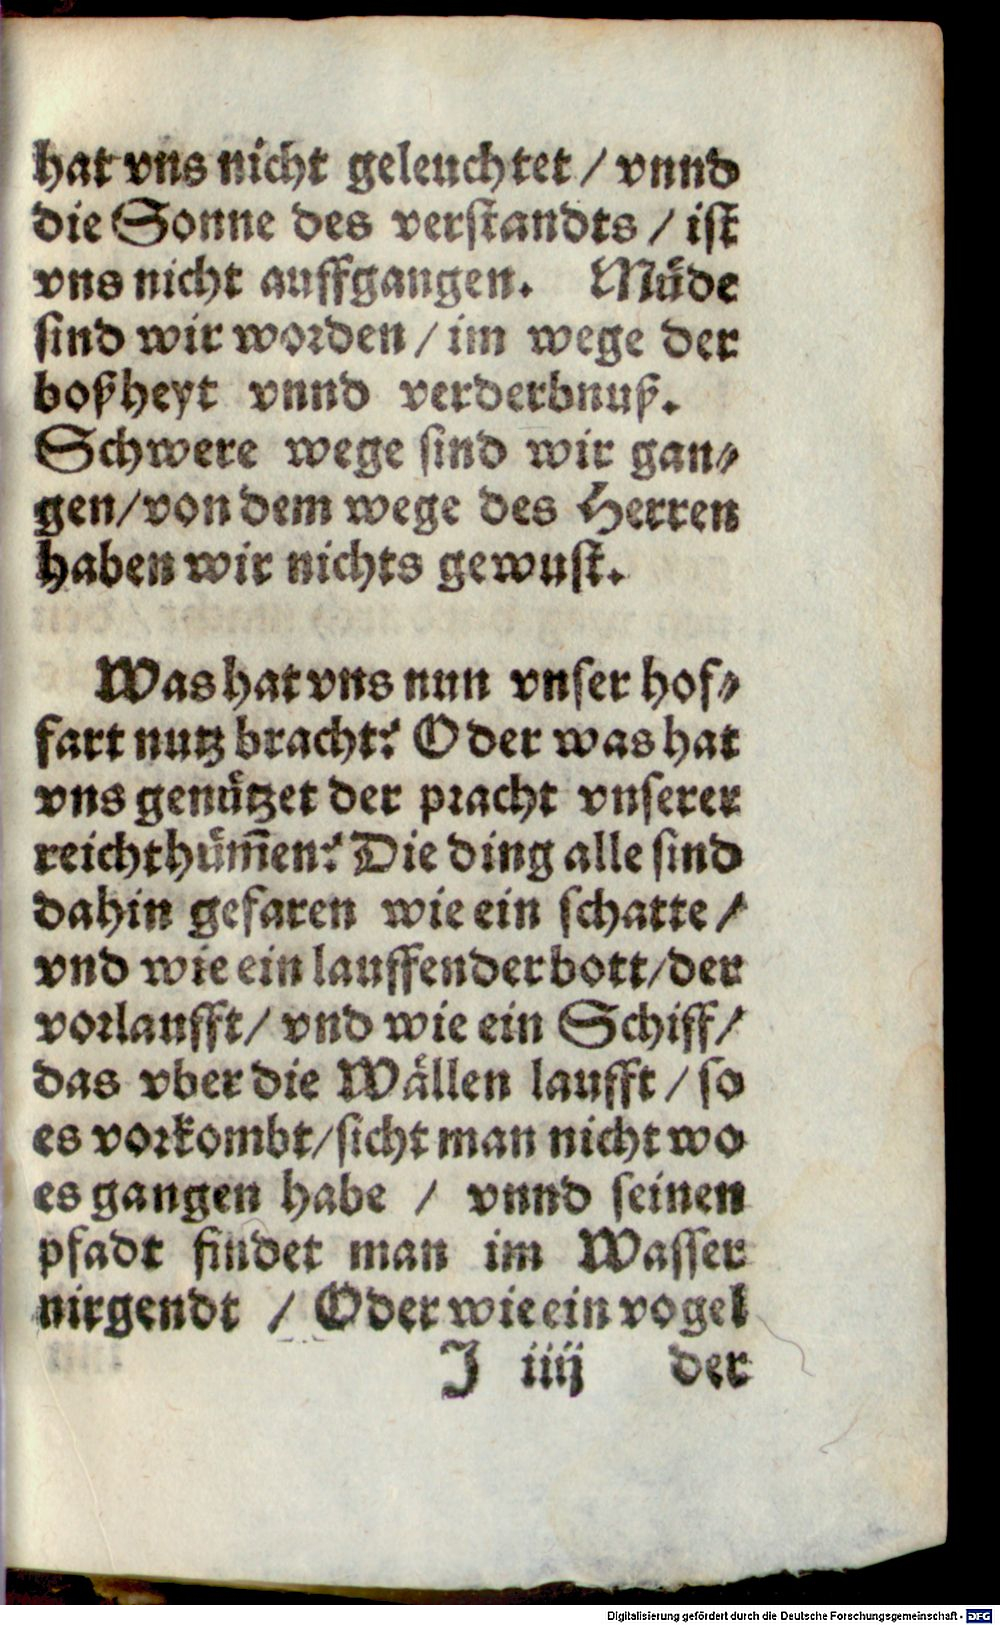 hat vns nicht geleuchtet / vnnd
die Sonne des verstandts / ist
vns nicht auffgangen. Müde
sind wir worden / im wege der
boßheyt vnnd verderbnuß.
Schwere wege sind wir gan⸗
gen/von dem wege des Herren
haben wir nichts gewust.
Was hat vns nun vnser hof⸗
fart nutz bracht? Oder was hat
vns genützet der pracht vnserer
reichthüm̃en? Die ding alle sind
dahin gefaren wie ein schatte /
vnd wie ein lauffender bott/der
vorlaufft/ vnd wie ein Schiff/
das vber die Wällen laufft / so
es vorkombt/sicht man nicht wo
es gangen habe / vnnd seinen
pfadt findet man im Wasser
nirgendt / Oder wie ein vogel
J iiij der
Digitalisierung gefördert durch die Deutsche Forschungsgemeinschaft - DFG